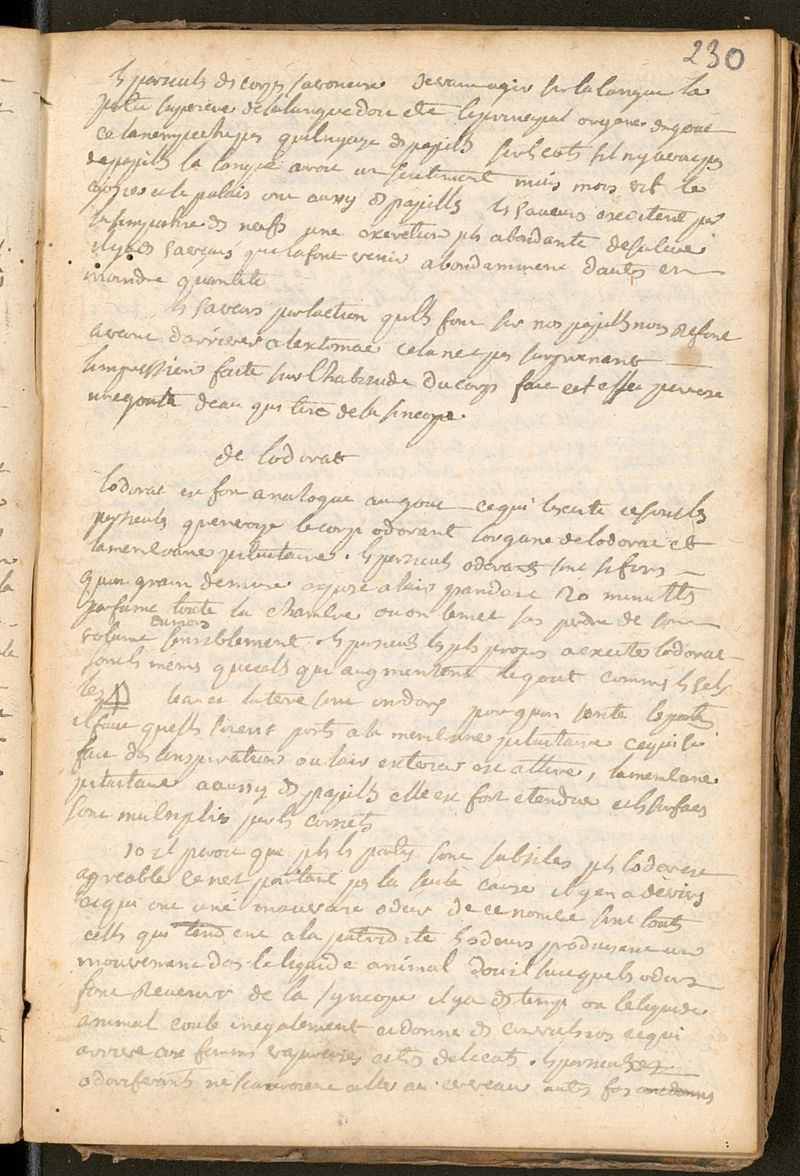 230
devant agir sur la langue la
partie superieure de la langue doit etre le principal organe du gout
cela nempeche pas quil ny aye des papilles sur les cotés sil ny avait pas
de papilles la langue auroit un sentiment mais mois vif le
et le palais ont aussy des papilles les saveurs excitent par
des nerfs une excretion plus abondante de salive
il y a des saveurs qui la font venir abondamment dautres en
moindre quantité
les saveurs par laction quils font sur nos papilles nous
avant darriver a lestomac cela nest pas surprenant
limpression faite sur lhabitude du corps fait cet effet
une goute deau qui tire de la sincope
de lodorat
lodorat est fort analogue au gout ce qui lexcite ce sont les
particules quenvoye le corp odorant lorgane de lodorat est
la membrane pituitaire . les particules odorantes sont si fines
quun grain de musc exposé a lair pendant 20 minuttes
parfume toute la chambre ou on le met sans perdre de son
volume dumois sensiblement . les particules les plus propres a exciter lodorat
sont les memes que cels qui augmentent le gout comme les sels
les leau et la terre sont inodores pour quon sente
il faut quells soient portés a la membrane pituitaire ce qui se
fait dans linspiration ou lair exterieur est attiré , la membrane
pituitaire a aussy des papills elle est fort etendue et les surfaces
sont multipliés par les cornets
10 il paroit que plus les parties sont subtiles plus lodeur est
agreable ce nest pourtant pas la seule cause il y en a de vives
et qui ont une mauvaise odeur de ce nombre sont touts
cells qui tendent a la putridité les odeurs produisent un
mouvement dans le liquide animal dou il suit que les odeurs
font revenir de la syncope il y a des temps ou le liquide
animal coule inegalement et donne des convulsions ce qui
arrive aux femmes vaporeuses et tres delicates . les particules
odoriferants ne scauroient aller au cerveau